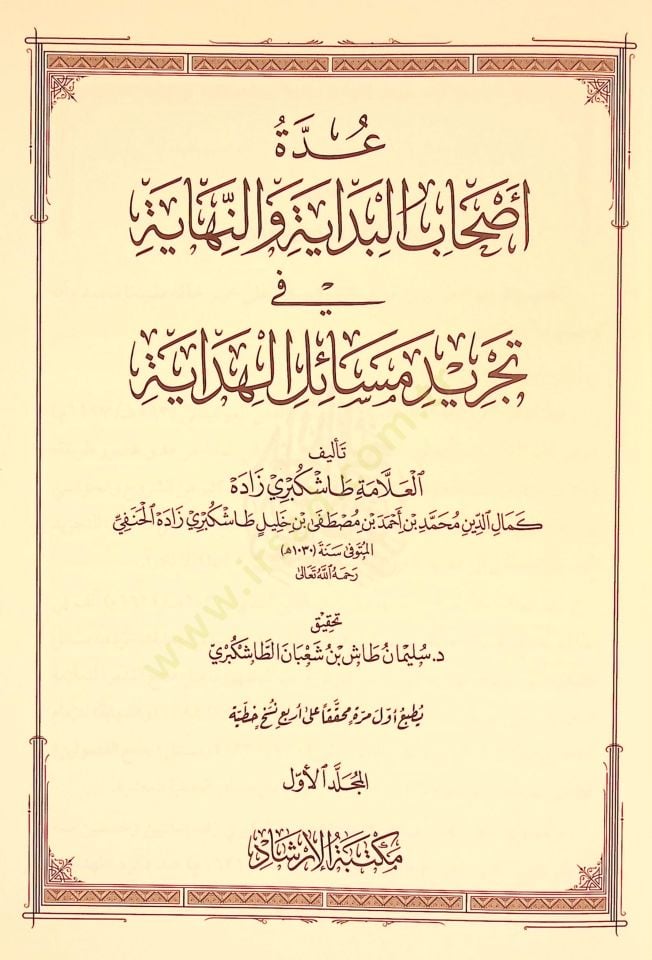 عُدَّةُ
أَصْحَابِ الْبِدَايَةِ وَالنِّهَايَةِ
فِي
تَجْرِيدِ مَسَائِلِ الْهِدَايَةِ
تَأْلِيف
الْعَلَّامَةِ طَاشْكُبْرِي زَادَهْ
كَمَالِ الدِّينِ مُحَمَّدِ بْنِ أَحْمَدَ بْنِ مُصْطَفَى بْنِ خَلِيلٍ طَاشْكُبْرِي زَادَهْ الْحَنَفِيِّ
المُتَوَفَّى سَنَةَ (١٠٣٠هـ)
رَحِمَهُ اللَّهُ تَعَالَى
تَحْقِيق
د. سُلَيْمَان طَاش بْن شَعْبَان الطَّاشْكُبْرِي
يُطبَعُ أوّل مرّةٍ محقَّقاً على أربع نسَخٍ خطيّة
المُجَلَّد الأوّل
مَكْتَبَة الْإِرْشَاد